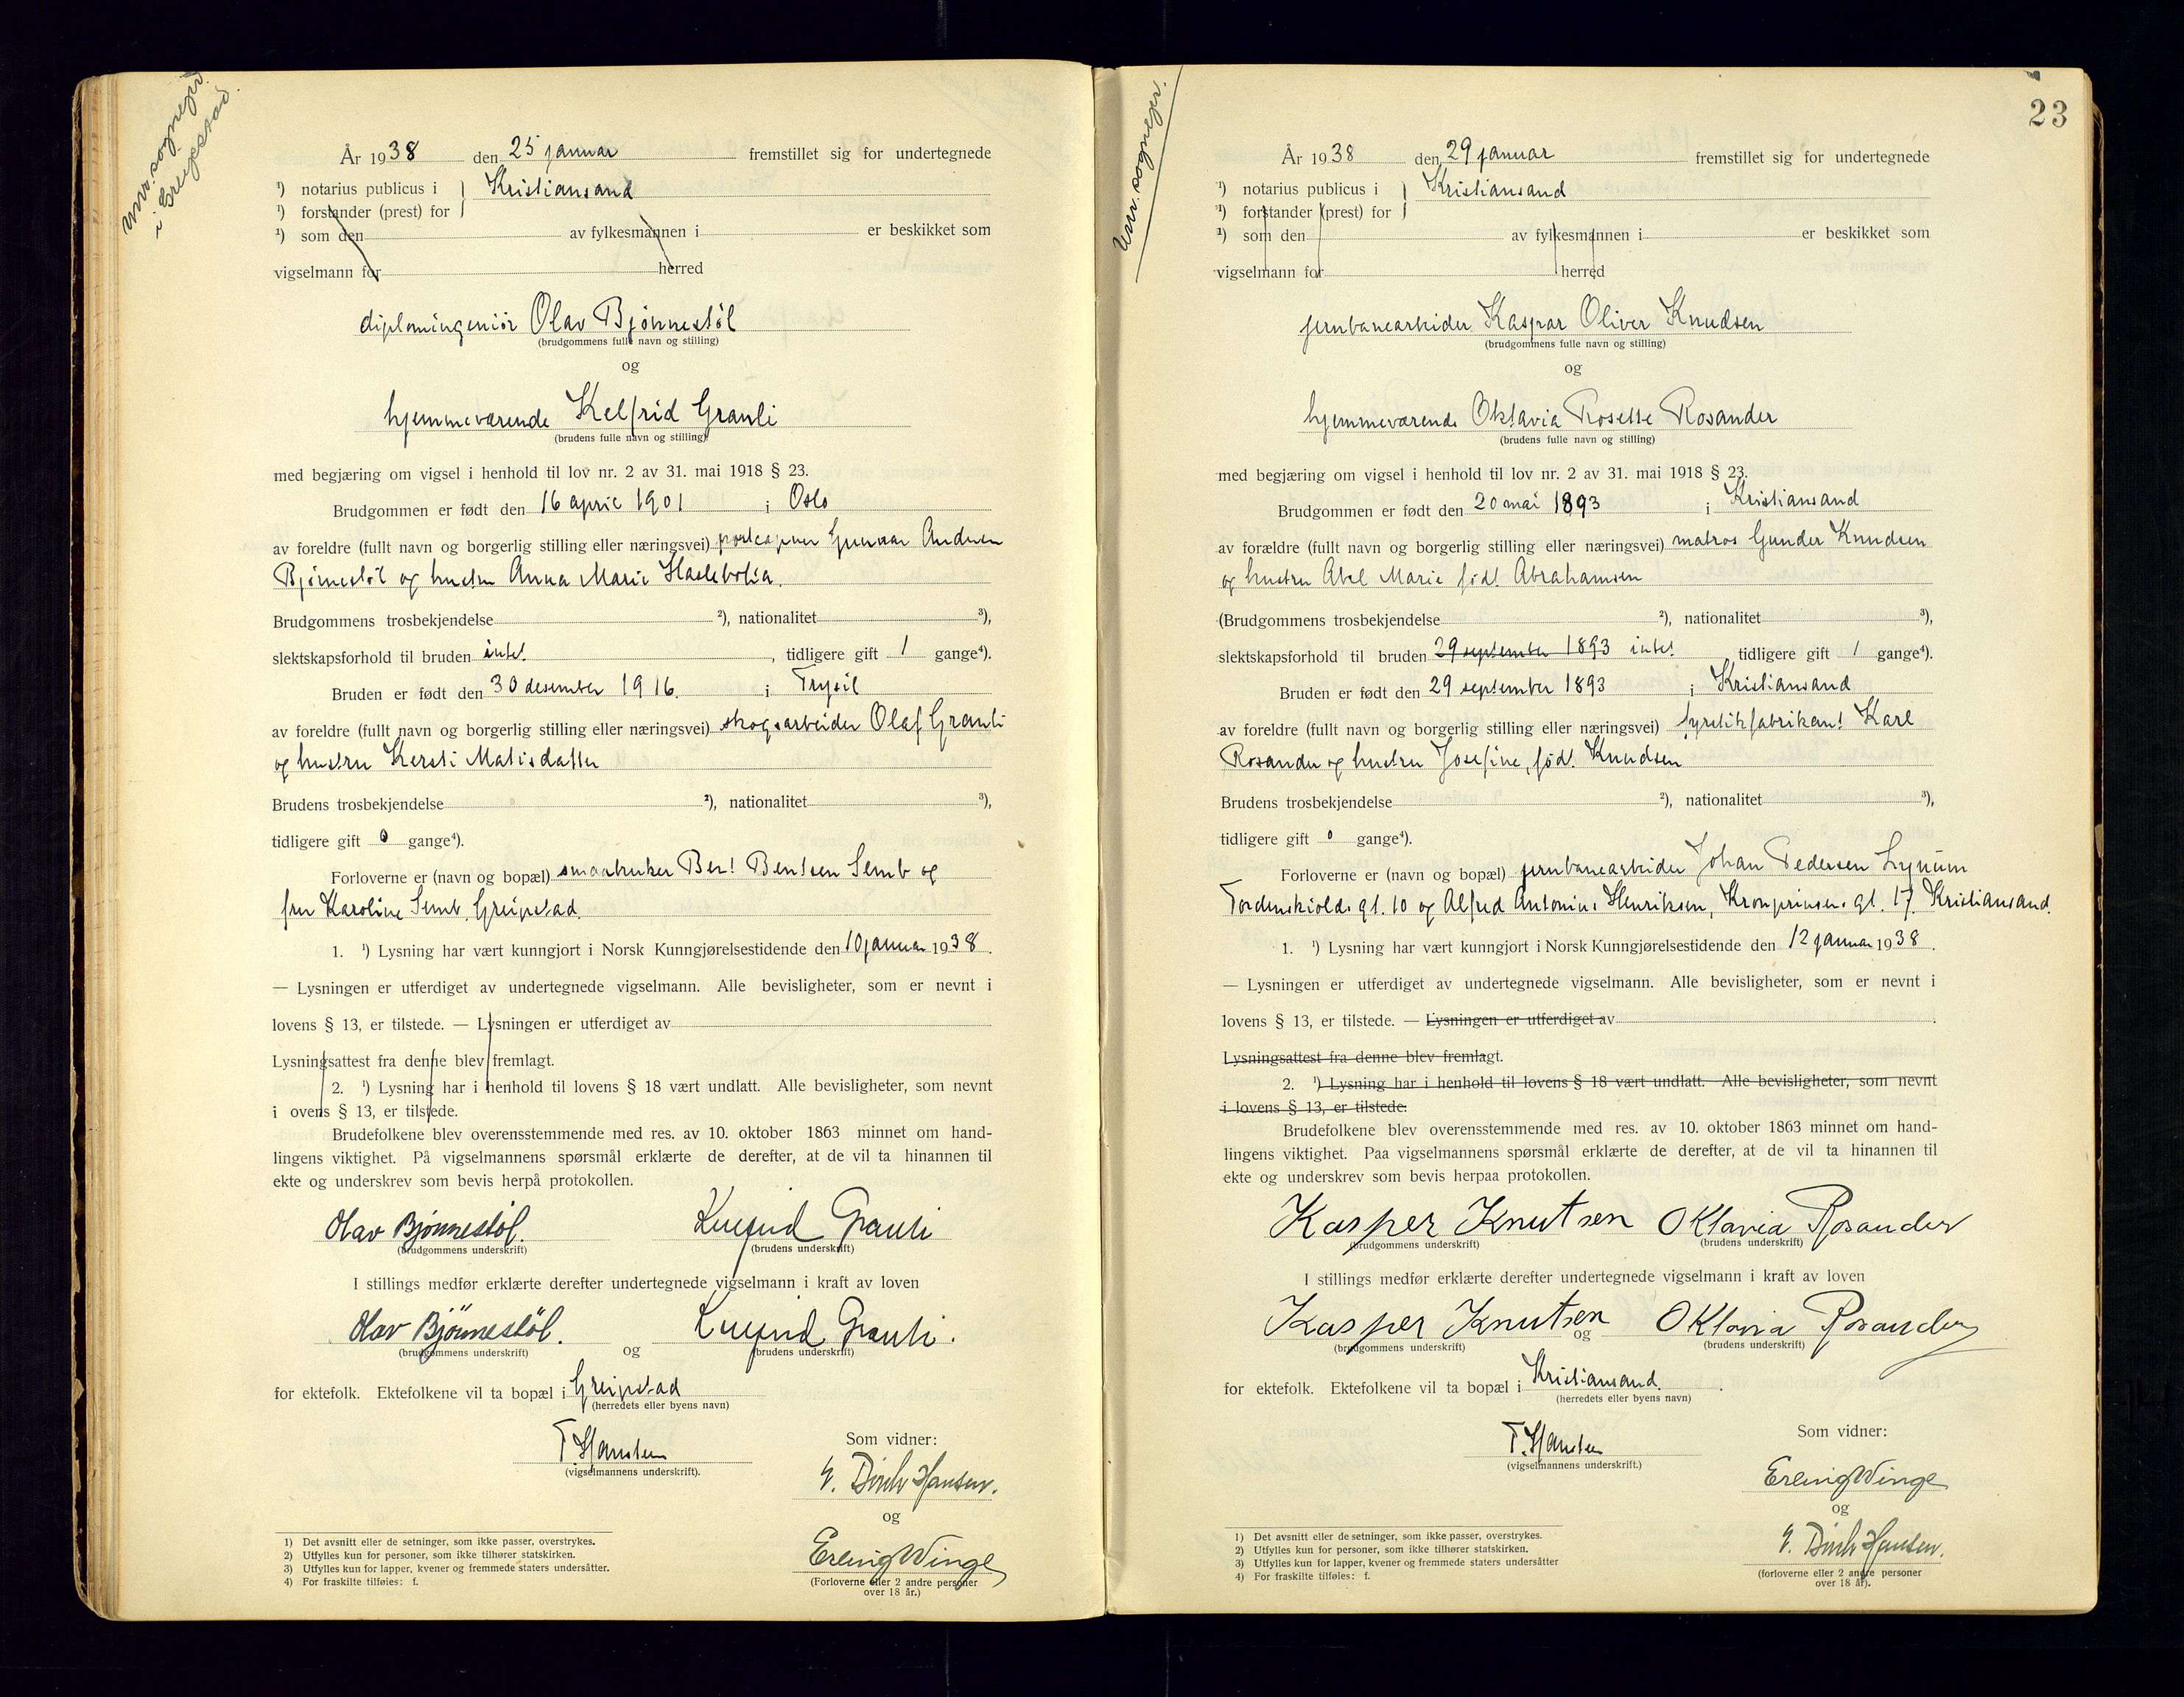 i Greipstad.
År 1938 den 25 januar fremstillet sig for undertegnede
¹) notarius publicus i } Kristiansand
¹) forstander (prest) for
¹) som den av fylkesmannen i er beskikket som
vigselmann for herred
diplomingeniør Olav Bjønnestøl
(brudgommens fulle navn og stilling)
og
hjemmeværende Kelfrid Granli
(brudens fulle navn og stilling)
med begjæring om vigsel i henhold til lov nr. 2 av 31. mai 1918 § 23.
Brudgommen er født den 16 april 1901 i Oslo
av foreldre (fullt navn og borgerlig stilling eller næringsvei) Gunnar Andreas
Bjønnestøl og hustru Anna Marie
Brudgommens trosbekjendelse ²), nationalitet ³),
slektskapsforhold til bruden intet , tidligere gift 1 gange⁴).
Bruden er født den 30 desember 1916. i Trysil
av foreldre (fullt navn og borgerlig stilling eller næringsvei) skogsarbeider Olaf Granli
og hustru Kersti Matisdatter
Brudens trosbekjendelse ²), nationalitet ³),
tidligere gift 0 gange⁴).
Forloverne er (navn og bopæl) smaabruker Bent Bentsen Semb og
fru Karoline Semb, Greipstad.
1. ¹) Lysning har vært kunngjort i Norsk Kunngjørelsestidende den 10 januar 1938.
— Lysningen er utferdiget av undertegnede vigselmann. Alle bevisligheter, som er nevnt i
lovens § 13, er tilstede. — Lysningen er utferdiget av
Lysningsattest fra denne blev fremlagt.
2. ¹) Lysning har i henhold til lovens § 18 vært undlatt. Alle bevisligheter, som nevnt
i ovens § 13, er tilstede.
Brudefolkene blev overensstemmende med res. av 10. oktober 1863 minnet om hand-
lingens viktighet. På vigselmannens spørsmål erklærte de derefter, at de vil ta hinannen til
ekte og underskrev som bevis herpå protokollen.
Olav Bjønnestøl. Kelfrid Granli
(brudgommens underskrift) (brudens underskrift)
I stillings medfør erklærte derefter undertegnede vigselmann i kraft av loven
Olav Bjønnestøl. Kelfrid Granli.
(brudgommens underskrift) og (brudens underskrift)
for ektefolk. Ektefolkene vil ta bopæl i Greipstad
(herredets eller byens navn)
T. Hansteen
(vigselmannens underskrift).
Som vidner:
Birch Hansen.
og
Erling Winge
(Forloverne eller 2 andre personer
over 18 år.)
1) Det avsnitt eller de setninger, som ikke passer, overstrykes.
2) Utfylles kun for personer, som ikke tilhører statskirken.
3) Utfylles kun for lapper, kvener og fremmede staters undersåtter.
4) For fraskilte tilføies: f.
23
År 1938 den 29 januar fremstillet sig for undertegnede
¹) notarius publicus i } Kristiansand
¹) forstander (prest) for
¹) som den av fylkesmannen i er beskikket som
vigselmann for herred
jernbanearbeider Kaspar Oliver Knudsen
(brudgommens fulle navn og stilling)
og
hjemmeværende Oktavia Rosette Rosander
(brudens fulle navn og stilling)
med begjæring om vigsel i henhold til lov nr. 2 av 31. mai 1918 § 23.
Brudgommen er født den 20 mai 1893 i Kristiansand
av forældre (fullt navn og borgerlig stilling eller næringsvei) matros Gunder Knudsen
og hustru Abel Marie født Abrahamsen
(Brudgommens trosbekjendelse ²), nationalitet ³),
slektskapsforhold til bruden 29 september 1893 intet tidligere gift 1 gange⁴).
Bruden er født den 29 september 1893 i Kristiansand
av foreldre (fullt navn og borgerlig stilling eller næringsvei) fyrstikfabrikant Karl
Rosander og hustru Josefine, født Knudsen
Brudens trosbekjendelse ²), nationalitet ³),
tidligere gift 0 gange⁴).
Forloverne er (navn og bopæl) jernbanearbeider Johan Pedersen
Tordenskiolds gt. 10 og Alfred Antonius Henriksen, Kronprinsens gt. 17, Kristiansand.
1. ¹) Lysning har vært kunngjort i Norsk Kunngjørelsestidende den 12 januar 1938.
— Lysningen er utferdiget av undertegnede vigselmann. Alle bevisligheter, som er nevnt i
lovens § 13, er tilstede. — Lysningen er utferdiget av
Lysningsattest fra denne blev fremlagt.
2. ¹) Lysning har i henhold til lovens § 18 vært undlatt. Alle bevisligheter, som nevnt
i lovens § 13, er tilstede.
Brudefolkene blev overensstemmende med res. av 10. oktober 1863 minnet om hand-
lingens viktighet. Paa vigselmannens spørsmål erklærte de derefter, at de vil ta hinannen til
ekte og underskrev som bevis herpaa protokollen.
Kasper Knutsen Oktavia Rosander
(brudgommens underskrift) (brudens underskrift)
I stillings medfør erklærte derefter undertegnede vigselmann i kraft av loven
Kasper Knutsen og Oktavia Rosander
(brudgommens underskrift) (brudens underskrift)
for ektefolk. Ektefolkene vil ta bopæl i Kristiansand.
(herredets eller byens navn)
T. Hansteen
(vigselmannens underskrift.)
Som vidner:
Erling Winge
og
Birch Hansen.
(forloverne eller 2 andre personer
over 18 år).
1) Det avsnitt eller de setninger, som ikke passer, overstrykes.
2) Utfylles kun for personer, som ikke tilhører statskirken.
3) Utfylles kun for lapper, kvener og fremmede staters undersåtter
4) For fraskilte tilføies: f.